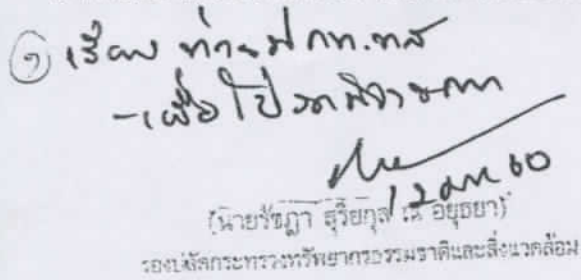 ๑ เรียน ท่าน ปกท.ทส
- เพื่อโปรดพิจารณา
12 ตค 60
(นายรัชฎา สุริยกุล ณ อยุธยา)
รองปลัดกระทรวงทรัพยากรธรรมชาติและสิ่งแวดล้อม